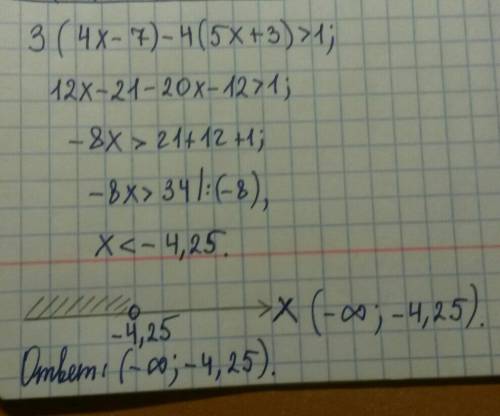 3(4x-7)-4(5x+3)>1;
12x-21-20x-12>1;
-8x>21+12+1;
-8x>34|:(-8),
x<-4,25.
-4,25 x (-∞; -4,25).
Ответ: (-∞; -4,25).